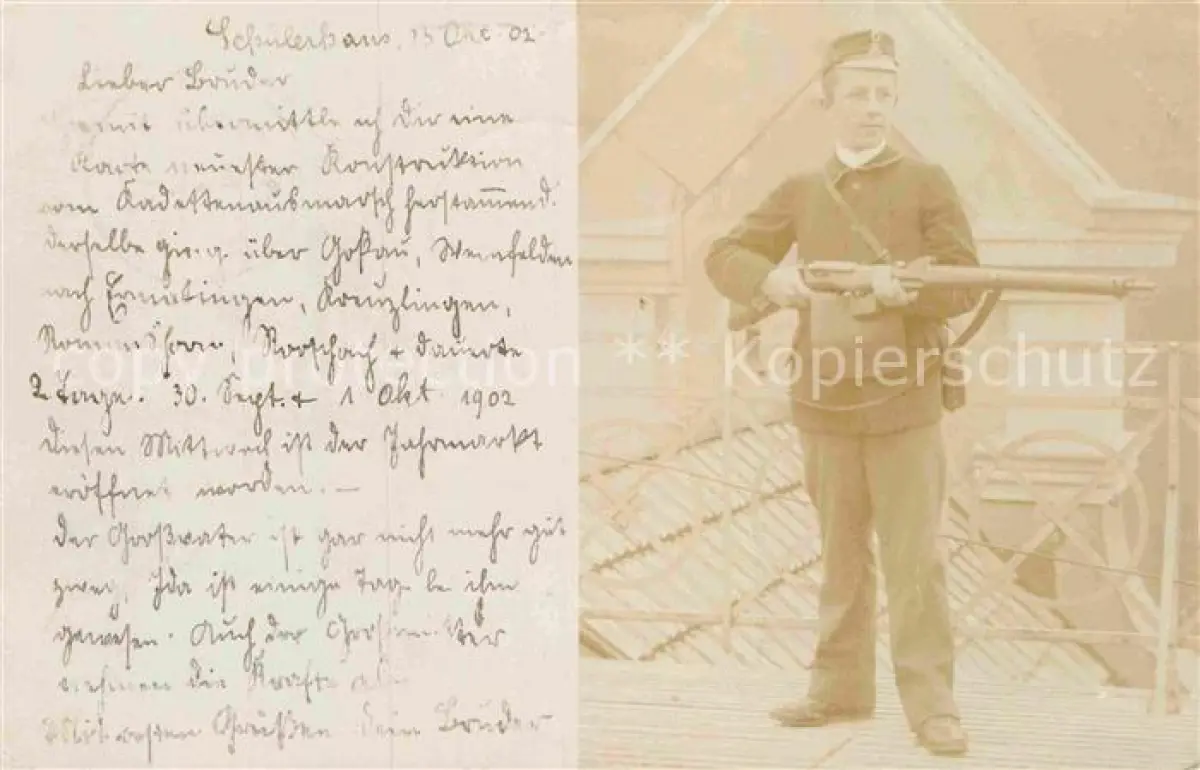 Schülerhaus, 15 Okt. 02.
Lieber Bruder
übermittle ich dir eine
Karte neuester Konstruktion
vom Kadettenausmarsch herstammend.
derselbe ging über Goßau, Weinfelden
nach Ermatingen, Kreuzlingen,
Romanshorn, Rorschach + dauerte
2 Tage. 30. Sept. + 1 Okt. 1902
diesen Mittwoch ist der Jahrmarkt
eröffnet worden. —
der Großvater ist gar nicht mehr gut
zweg, Ida ist einige Tage bei ihm
gewesen. Auch der Großmutter
nehmen die Kräfte ab.
Mit besten Grüßen dein Bruder
copy protection ** Kopierschutz